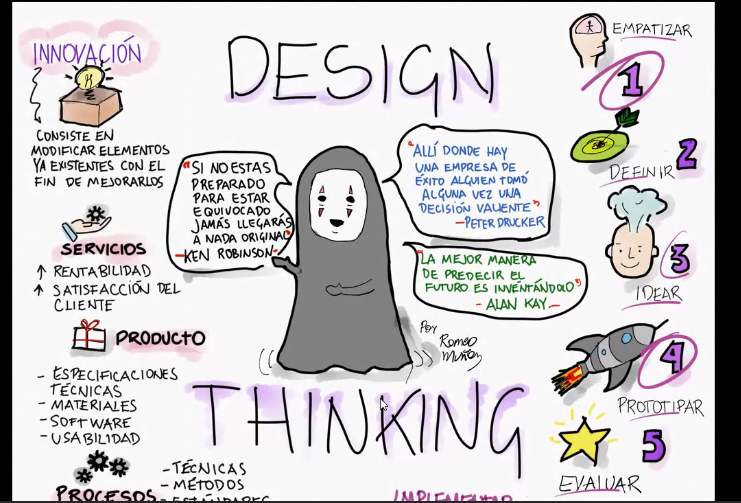 INNOVACIÓN
CONSISTE EN
MODIFICAR ELEMENTOS
YA EXISTENTES CON EL
FIN DE MEJORARLOS
SERVICIOS
↑ RENTABILIDAD
↑ SATISFACCIÓN DEL
CLIENTE
PRODUCTO
- ESPECIFICACIONES
TÉCNICAS
- MATERIALES
- SOFTWARE
- USABILIDAD
PROCESOS
- TÉCNICAS
- MÉTODOS
- ESTÁNDARES
DESIGN
"SI NO ESTAS
PREPARADO
PARA ESTAR
EQUIVOCADO
JAMÁS LLEGARÁS
A NADA ORIGINAL"
- KEN ROBINSON -
"ALLÍ DONDE HAY
UNA EMPRESA DE
EXITO ALGUIEN TOMÓ
ALGUNA VEZ UNA
DECISIÓN VALIENTE"
- PETER DRUCKER
"LA MEJOR MANERA
DE PREDECIR EL
FUTURO ES INVENTÁNDOLO"
- ALAN KAY -
Por
Romeo
Muñoz
THINKING
IMPLEMENTAR
EMPATIZAR
1
2
DEFINIR
3
IDEAR
4
PROTOTIPAR
5
EVALUAR